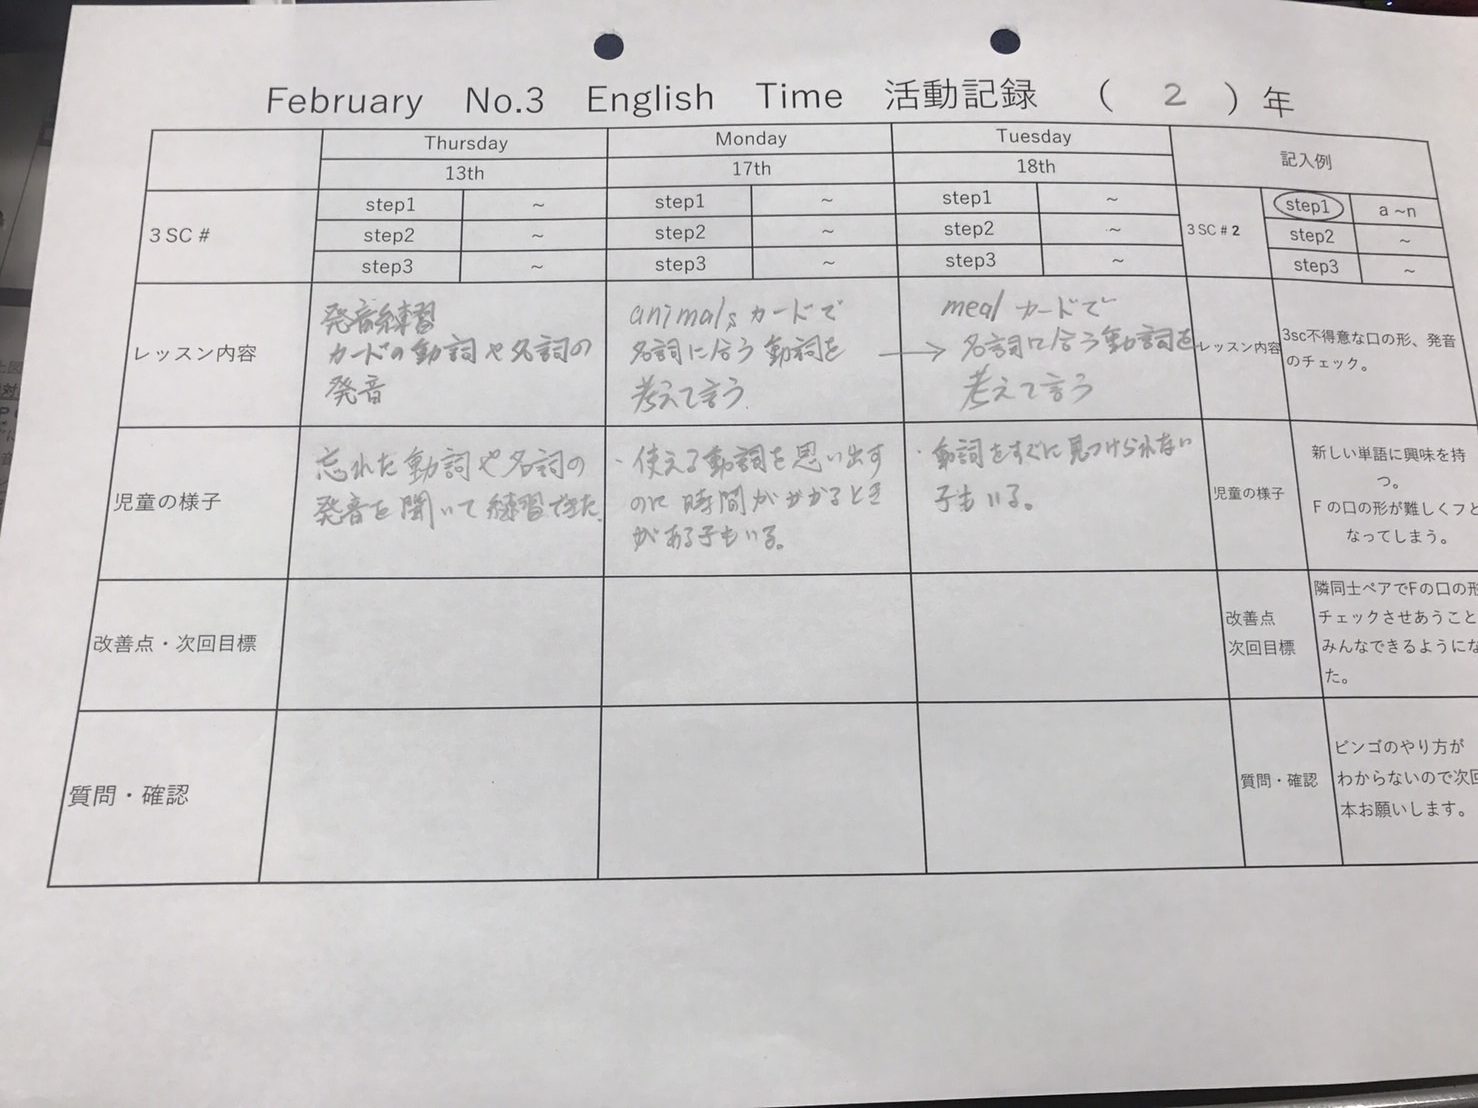 February No.3 English Time 活動記録 ( 2 ) 年
Thursday Monday Tuesday 記入例
13th 17th 18th
3 SC # step1 ~ step1 ~ step1 ~ 3 SC # 2 step1 a ~n
step2 ~ step2 ~ step2 ~ step2 ~
step3 ~ step3 ~ step3 ~ step3 ~
レッスン内容
発音練習
カードの動詞や名詞の
発音
animals カードで
名詞に合う動詞を
考えて言う
→
meal カードで
名詞に合う動詞を
考えて言う
レッスン内容
3sc不得意な口の形、発音
のチェック。
児童の様子
忘れた動詞や名詞の
発音を聞いて練習できた。
・使える動詞を思い出す
のに時間がかかるとき
がある子もいる。
・動詞をすぐに見つけられない
子もいる。
児童の様子
新しい単語に興味を持
つ。
Fの口の形が難しくフと
なってしまう。
改善点・次回目標
改善点
次回目標
隣同士ペアでFの口の形
チェックさせあうこと
みんなできるようにな
た。
質問・確認
質問・確認
ビンゴのやり方が
わからないので次回
本お願いします。